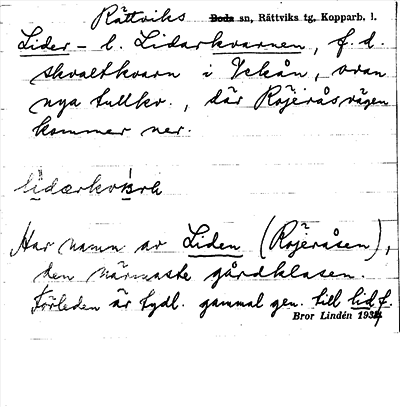 Rättviks Boda sn, Rättviks tg, Kopparb. l.
Lider- l. Lidarkvarnen, f. d.
skvaltkvarn i Ickån, ovan
nya tullkv., där Röjeråsvägen
kommer ner.
Har namn av Liden (Röjeråsen),
den närmaste gårdklasen.
Förleden är tydl. gammal gen. till lid f.
Bror Lindén 193